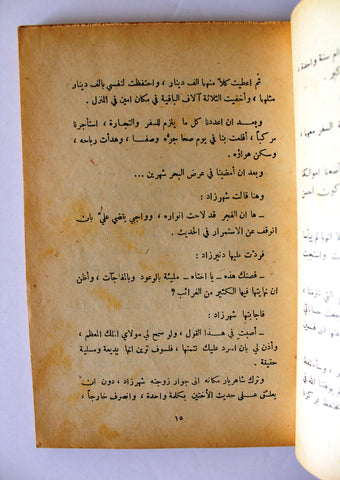 ثم اعطيت كلاً منهما الف دينار ، واحتفظت لنفسي بالف دينار
مثلها ، وأخفيت الثلاثة آلاف الباقية في مكان امين في المنزل .
وبعد ان اعددنا كل ما يلزم للسفر والتجارة ، استأجرنا
مركباً ، أقلعت بنا في يوم صحا جوّه وصفا ، وهدأت رياحه ،
وسكن هواؤه .
وبعد ان أمضينا في عرض البحر شهرين ...
وهنا قالت شهرزاد :
ـ ها ان الفجر قد لاحت انواره ، وواجبي يقضي عليّ بان
اتوقف عن الاستمرار في الحديث .
فردت عليها دنيرزاد :
ـ قصتك هذه ـ يا اختاه ـ مليئة بالوعود وبالمفاجآت ، وأظن
ان نهايتها فيها الكثير من الغرائب ؟
فاجابتها شهرزاد :
ـ أصبت في هذا القول ، ولو سمح لي مولاي الملك المعظم ،
وأذن لي بان اسرد عليك تتمتها ، فلسوف ترين انها بديعة ومسلية
حقيقة .
وترك شاهريار مكانه الى جوار زوجته شهرزاد ، دون ان
يعلق على حديث الأختين بكلمة واحدة ، وانصرف خارجاً ،
١٥
لم سنة واحدة ،
السفر معها ،